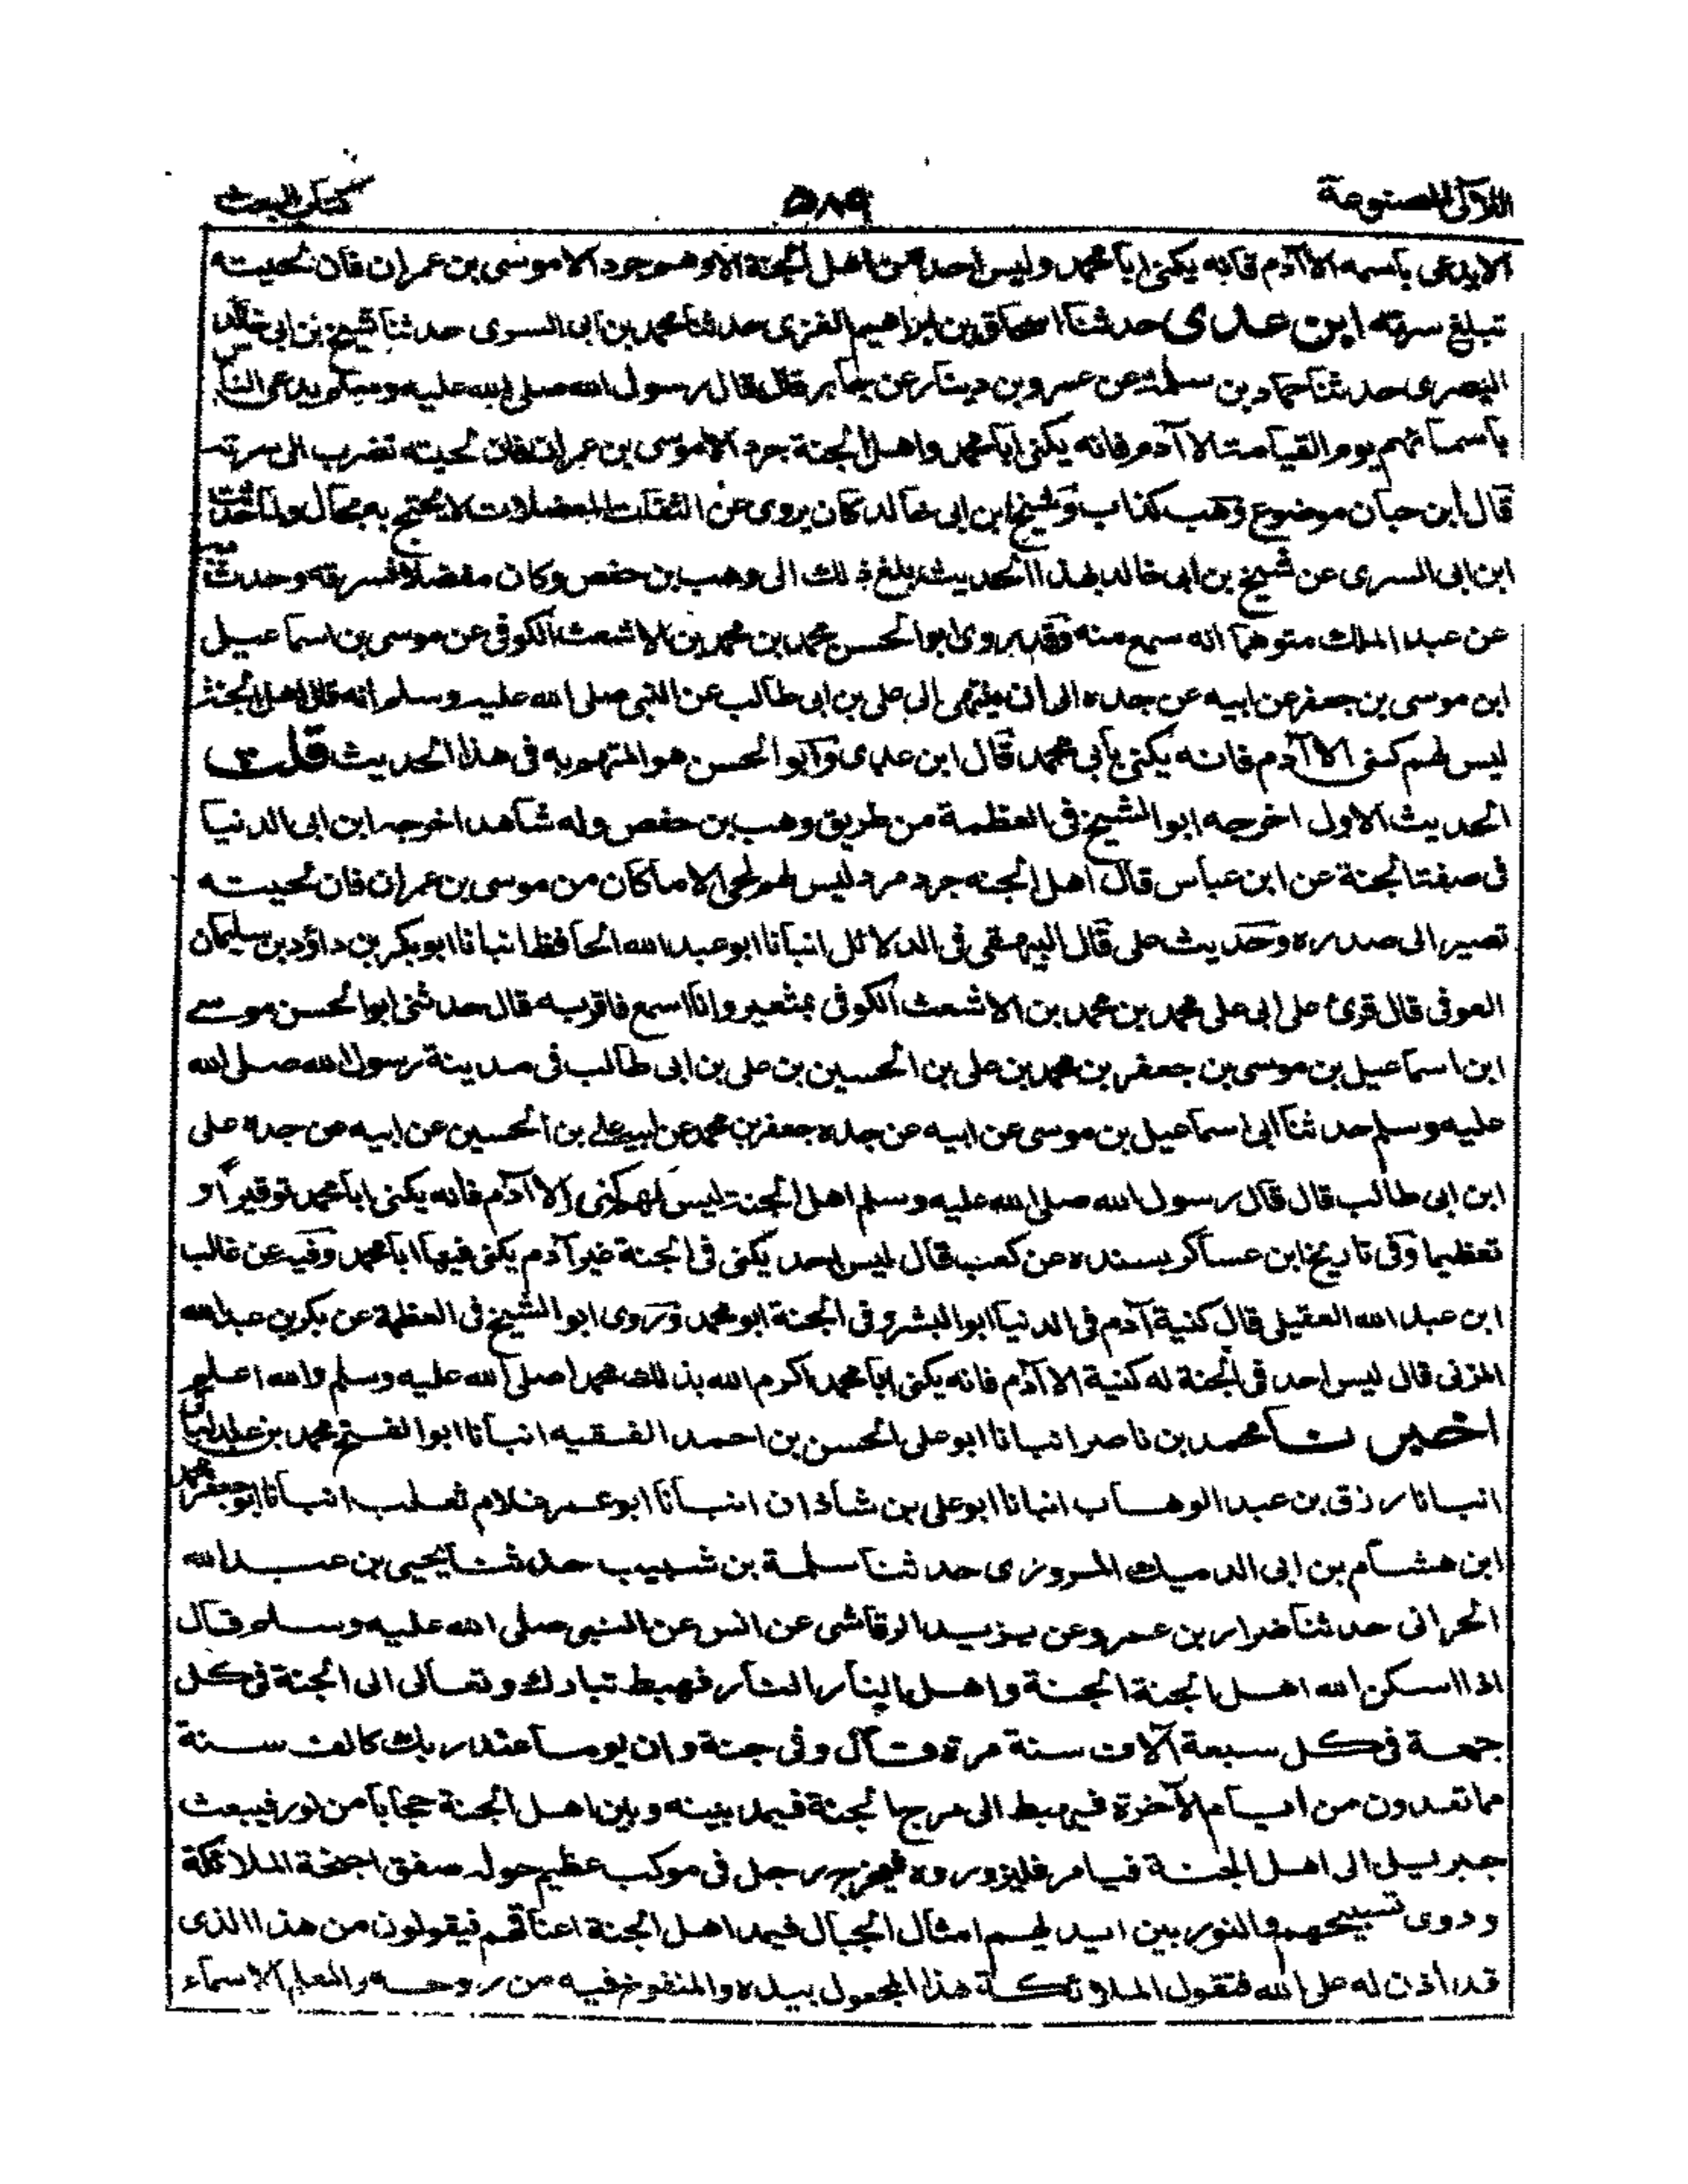 اللآلى المصنوعة ٥٨٩ كتاب البعث
الا يدعى باسمه الا آدم فانه يكنى ابا محمد وليس احد من اهل الجنة الا وهو جرد الا موسى بن عمران فان لحيته
تبلغ سرته ابن عدى حدثنا اسحاق بن ابراهيم الغزى حدثنا محمد بن ابى السرى حدثنا شيخ بن ابى خالد
البصرى حدثنا حماد بن سلمة عن عمرو بن دينار عن جابر قال قال رسول الله صلى الله عليه وسلم يدعى الناس
باسمائهم يوم القيامة الا آدم فانه يكنى ابا محمد واهل الجنة جرد الا موسى بن عمران فان لحيته تضرب الى سرته
قال ابن حبان موضوع وهب كذاب وشيخ ابن ابى خالد كان يروى عن الثقات المعضلات لا يحتج به بحال ولما حدث
ابن ابى السرى عن شيخ بن ابى خالد بهذا الحديث بلغ ذلك الى وهب بن حفص وكان مغفلا فسرقه وحدث به
عن عبد الملك متوهما انه سمع منه وقد روى ابو الحسن محمد بن محمد بن الاشعث الكوفى عن موسى بن اسماعيل
ابن موسى بن جعفر عن ابيه عن جده الى ان ينتهى الى على بن ابى طالب عن النبى صلى الله عليه وسلم انه قال اهل الجنة
ليس لهم كنى الا آدم فانه يكنى بأبى محمد قال ابن عدى وابو الحسن هو المتهم به فى هذا الحديث قلت
الحديث الاول اخرجه ابو الشيخ فى العظمة من طريق وهب بن حفص وله شاهد اخرجه ابن ابى الدنيا
فى صفة الجنة عن ابن عباس قال اهل الجنه جرد مرد ليس لهم لحى الا ما كان من موسى بن عمران فان لحيته
تصير الى صدره وحديث على قال البيهقى فى الدلائل انبأنا ابو عبد الله الحافظ انبانا ابو بكر بن داؤد بن سليمان
العوفى قال قرئ على ابى على محمد بن محمد بن الاشعث الكوفى بمثعير وانا اسمع فاقر به قال حدثنى ابو الحسن موسے
ابن اسماعيل بن موسى بن جعفر بن محمد بن على بن الحسين بن على بن ابى طالب فى مدينة رسول الله صلى الله
عليه وسلم حدثنا ابى اسماعيل بن موسى عن ابيه عن جده جعفر بن محمد عن ابيه على بن الحسين عن ابيه عن جده على
ابن ابى طالب قال قال رسول الله صلى الله عليه وسلم اهل الجنة ليس لهم كنى الا آدم فانه يكنى ابا محمد توقيراً و
تعظيما وفى تاريخ ابن عساكر بسنده عن كعب قال ليس احد يكنى فى الجنة غير آدم يكنى فيها ابا محمد وفيه عن غالب
ابن عبد الله العقيلى قال كنية آدم فى الدنيا ابو البشر وفى الجنة ابو محمد وروى ابو الشيخ فى العظمة عن بكر بن عبد الله
المزنى قال ليس احد فى الجنة له كنية الا آدم فانه يكنى ابا محمد اكرم الله بذلك محمدا صلى الله عليه وسلم والله اعلم
اخبرنا محمد بن ناصر انبانا ابو على الحسن بن احمد الفقيه انبأنا ابو الفتح محمد بن
انبانا رزق بن عبد الوهاب انبانا ابو على بن شاذان انبأنا ابو عمر غلام ثعلب انبأنا ابو جعفر محمد
ابن هشام بن ابى الدميك المروزى حدثنا سلمة بن شبيب حدثنا يحيى بن عبد الله
الحرانى حدثنا ضرار بن عمرو عن يزيد الرقاشى عن انس عن النبى صلى الله عليه وسلم قال
اذا اسكن الله اهل الجنة الجنة واهل النار النار فهبط تبارك وتعالى الى الجنة فى كل
جمعة فى كل سبعة آلاف سنة مرة قال وفى جنة وان يوما عند ربك كالف سنة
مما تعدون من ايام الآخرة فيهبط الى مرج الجنة فيمد بينه وبين اهل الجنة حجابا من نور فيبعث
جبريل الى اهل الجنة فيامر فليزوروه فيخرج رجل فى موكب عظيم حوله صفق اجنحة الملائكة
ودوى تسبيحهم والنور بين ايديهم امثال الجبال فيمد اهل الجنة اعناقهم فيقولون من هذا الذى
قد اذن له على الله فتقول الملائكة هذا المجعول بيده والمنفوخ فيه من روحه والمعلم الاسماء